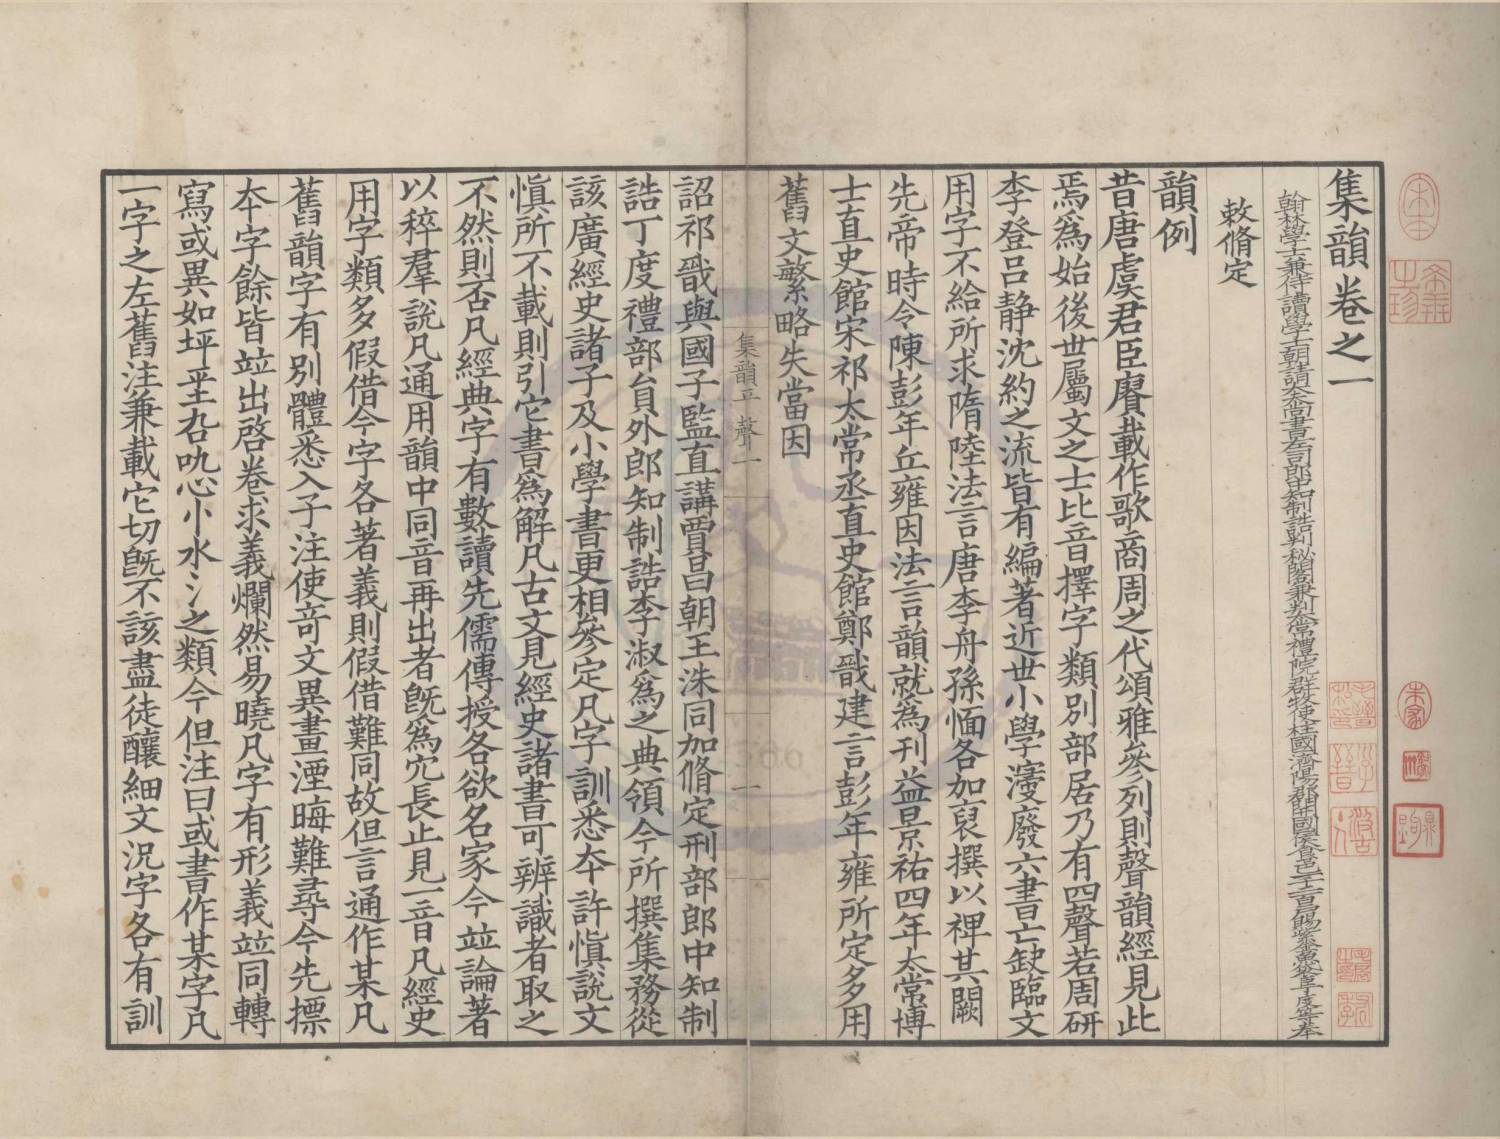 集韻卷之一
翰林學士兼侍讀學士朝請大夫尚書左司郎中知制誥判秘閣兼判太常禮院羣牧使柱國濟陽郡開國侯食邑一千一百戶賜紫金魚袋臣丁度等奉
敕脩定
韻例
昔唐虞君臣賡載作歌商周之代頌雅參列則聲韻經見此
焉爲始後世屬文之士比音擇字類別部居乃有四聲若周研
李登吕静沈約之流皆有編著近世小學寖廢六書亡缺臨文
用字不給所求隋陸法言唐李舟孫愐各加裒撰以裨其闕
先帝時令陳彭年丘雍因法言韻就為刊益景祐四年太常博
士直史館宋祁太常丞直史館鄭戩建言彭年雍所定多用
舊文繁略失當因
集韻平聲一
一
詔祁戩與國子監直講賈昌朝王洙同加脩定刑部郎中知制
誥丁度禮部貟外郎知制誥李淑爲之典領令所撰集務從
該廣經史諸子及小學書更相參定凡字訓悉夲許慎說文
慎所不載則引它書爲解凡古文見經史諸書可辨識者取之
不然則否凡經典字有數讀先儒傳授各欲名家今竝論著
以稡羣說凡通用韻中同音再出者旣爲宂長止見一音凡經史
用字類多假借今字各著義則假借難同故但言通作某凡
舊韻字有別體悉入子注使竒文異畫湮晦難尋今先標
夲字餘皆竝出啓卷求義爛然易曉凡字有形義竝同轉
寫或異如坪坓旮叴心忄水氵之類今但注曰或書作某字凡
一字之左舊注兼載它切旣不該盡徒釀細文況字各有訓